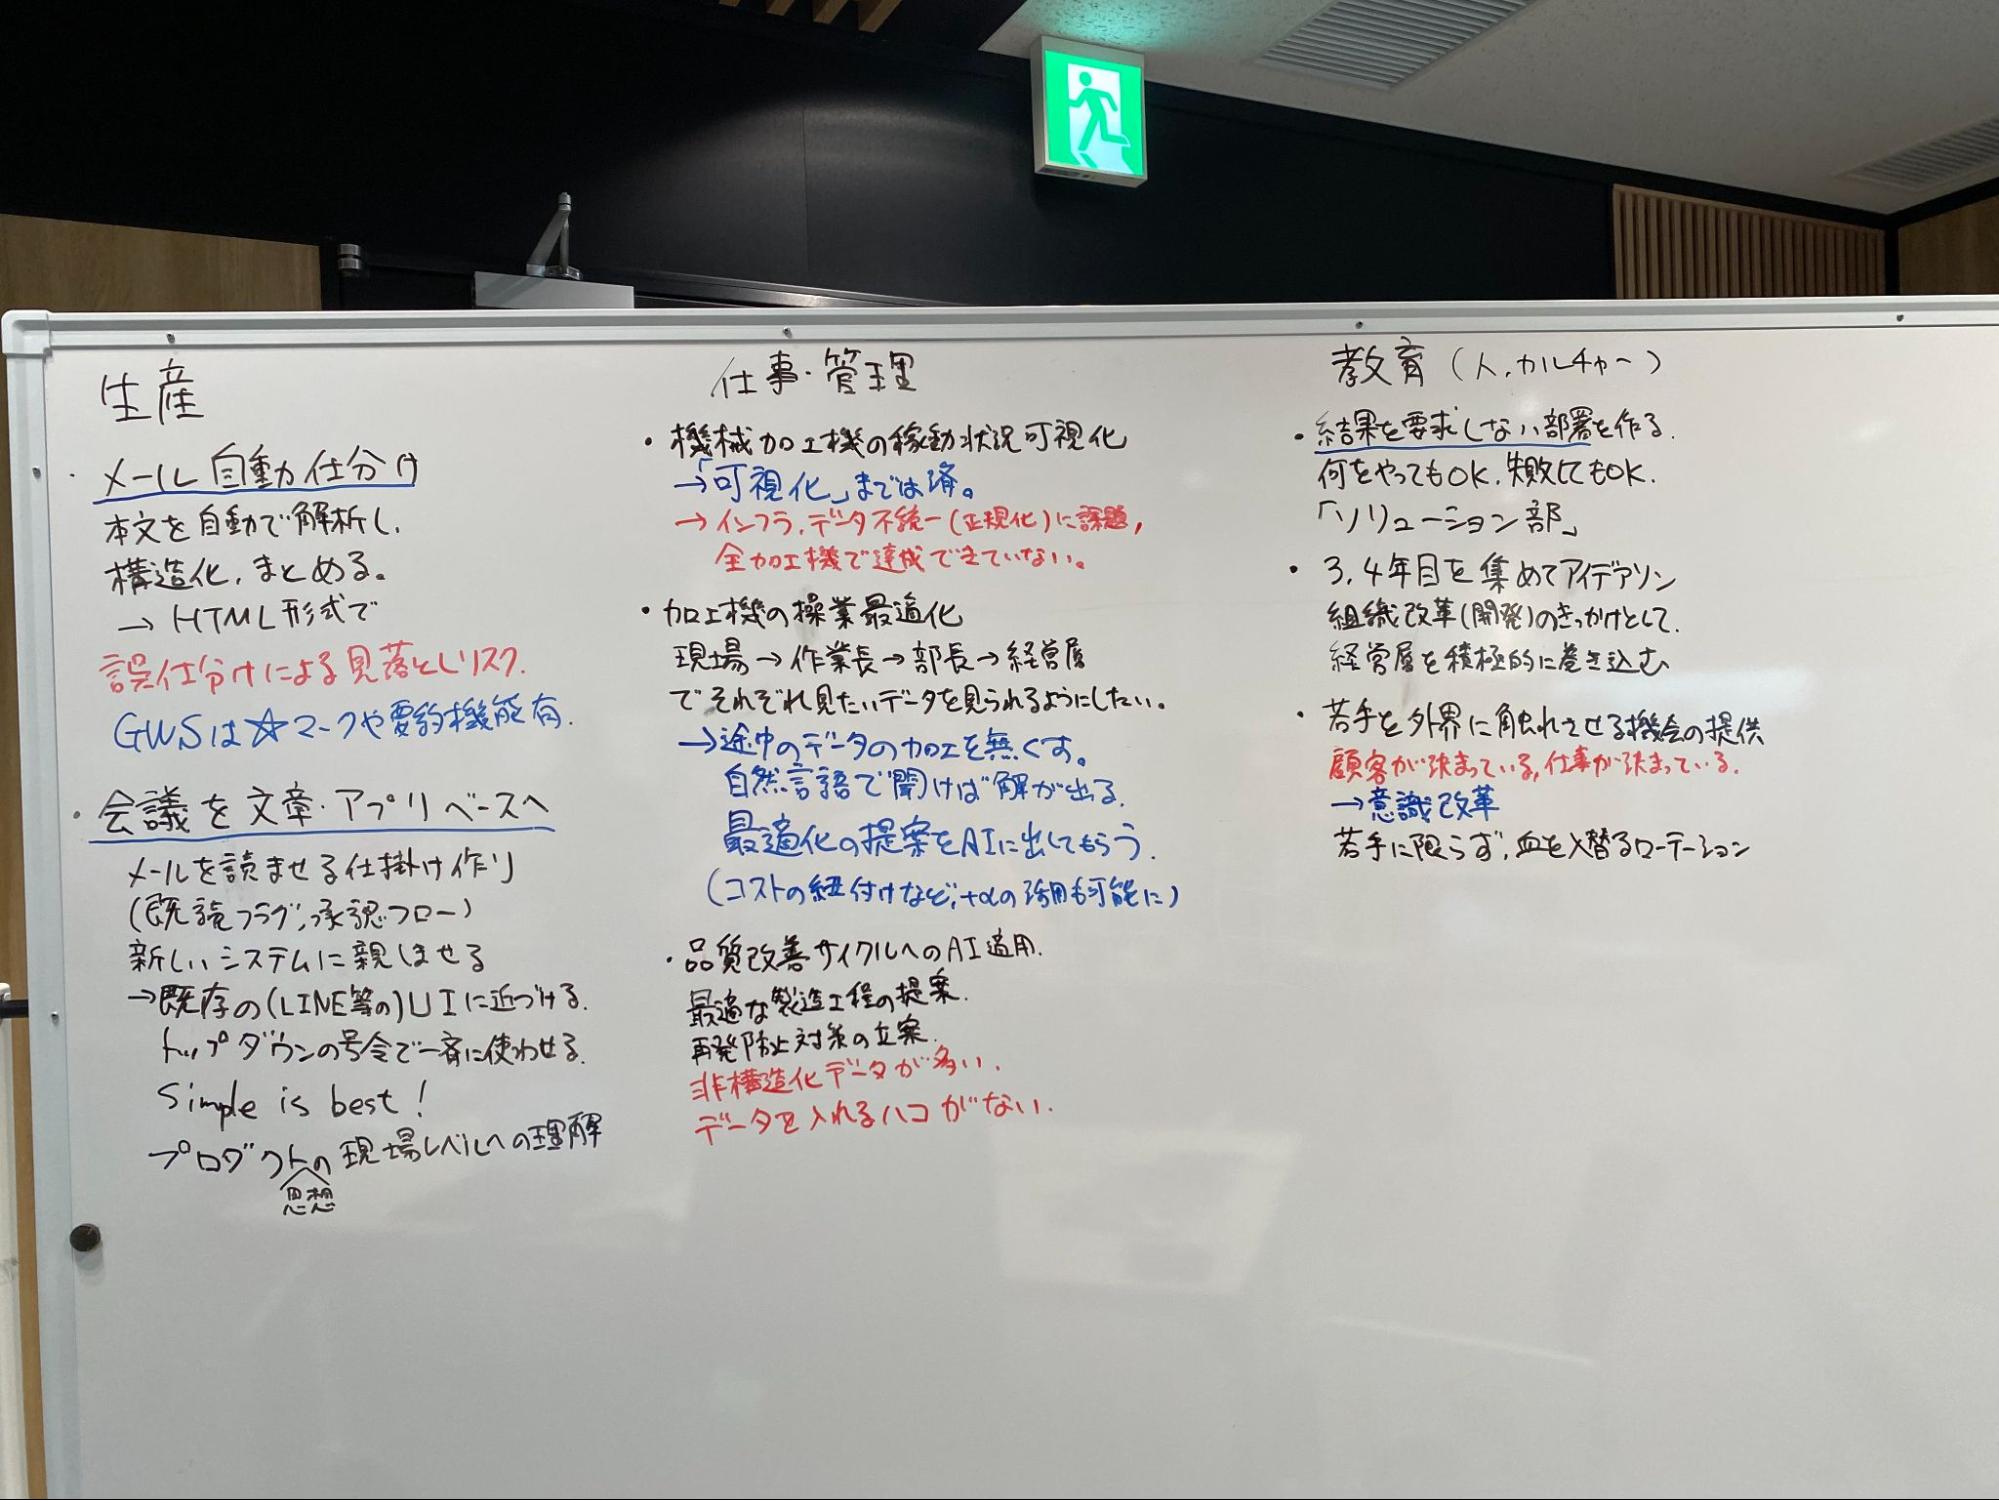 生産
・メール自動仕分け
本文を自動で解析し、
構造化、まとめる。
→HTML形式で
誤仕分けによる見落としリスク.
GWSは☆マークや要約機能有.
・会議を文章・アプリベースへ
メールを読ませる仕掛け作り
(既読フラグ,承認フロー)
新しいシステムに親しませる
→既存の(LINE等の)UIに近づける.
トップダウンの号令で一斉に使わせる.
Simple is best!
プロダクトの現場レベルへの理解
思想
仕事・管理
・機械加工機の稼動状況可視化
→「可視化」までは済。
→インフラ,データ不統一(正規化)に課題,
全加工機で達成できていない。
・加工機の操業最適化
現場→作業長→部長→経営層
でそれぞれ見たいデータを見られるようにしたい。
→途中のデータの加工を無くす。
自然言語で聞けば解が出る.
最適化の提案をAIに出してもらう.
(コストの紐付けなど,+αの活用も可能に)
・品質改善サイクルへのAI適用.
最適な製造工程の提案.
再発防止対策の立案.
非構造化データが多い.
データを入れるハコがない.
教育(人,カルチャー)
・結果を要求しない部署を作る.
何をやってもOK.失敗してもOK.
「ソリューション部」
・3,4年目を集めてアイデアソン
組織改革(開発)のきっかけとして.
経営層を積極的に巻き込む
・若手を外界に触れさせる機会の提供
顧客が決まっている,仕事が決まっている.
→意識改革
若手に限らず,血を入替るローテーション